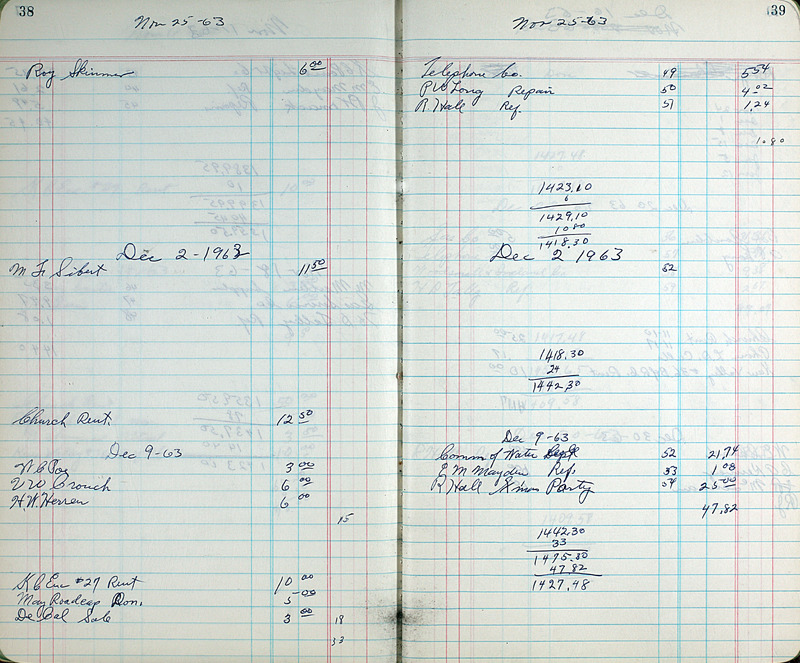 38
Nov 25-63
Roy Skinner 6 00
Dec 2-1963
M F Sibert 11 50
Church Rent. 12 50
Dec 9-63
N C Poe 3 00
V W Crouch 6 00
H. W. Herren 6 00
15
K C Enc #27 Rent 10 00
May Roadcap Don. 5 00
De Cal Sale 3 00 18
33
39
Nov 25-63
Telephone Co. 49 5 54
P W Long Repair 50 4 02
R Hall Ref. 51 1.24
10 80
1423.10
6
1429.10
10 80
1418.30
Dec 2 1963
52
1418.30
24
1442.30
Dec 9-63
Comm of Water Dept 52 21.74
E M Mayden Ref. 53 1 08
R Hall Xmas Party 54 25 00
47.82
1442.30
33
1475.30
47.82
1427.48